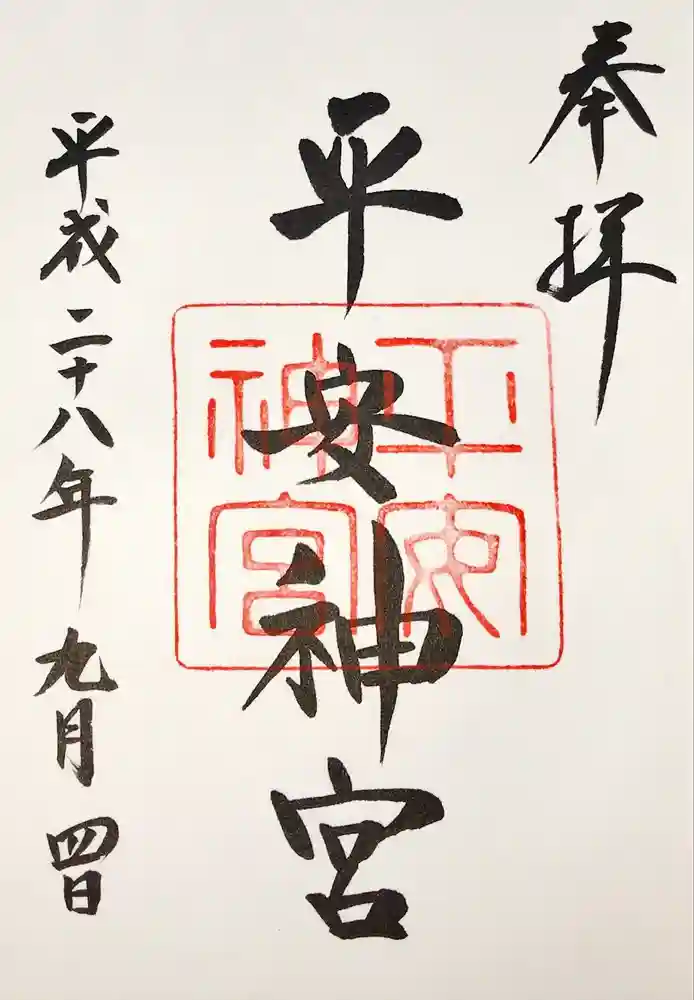 奉拝
平安神宮
平安
神宮
平成二十八年九月四日